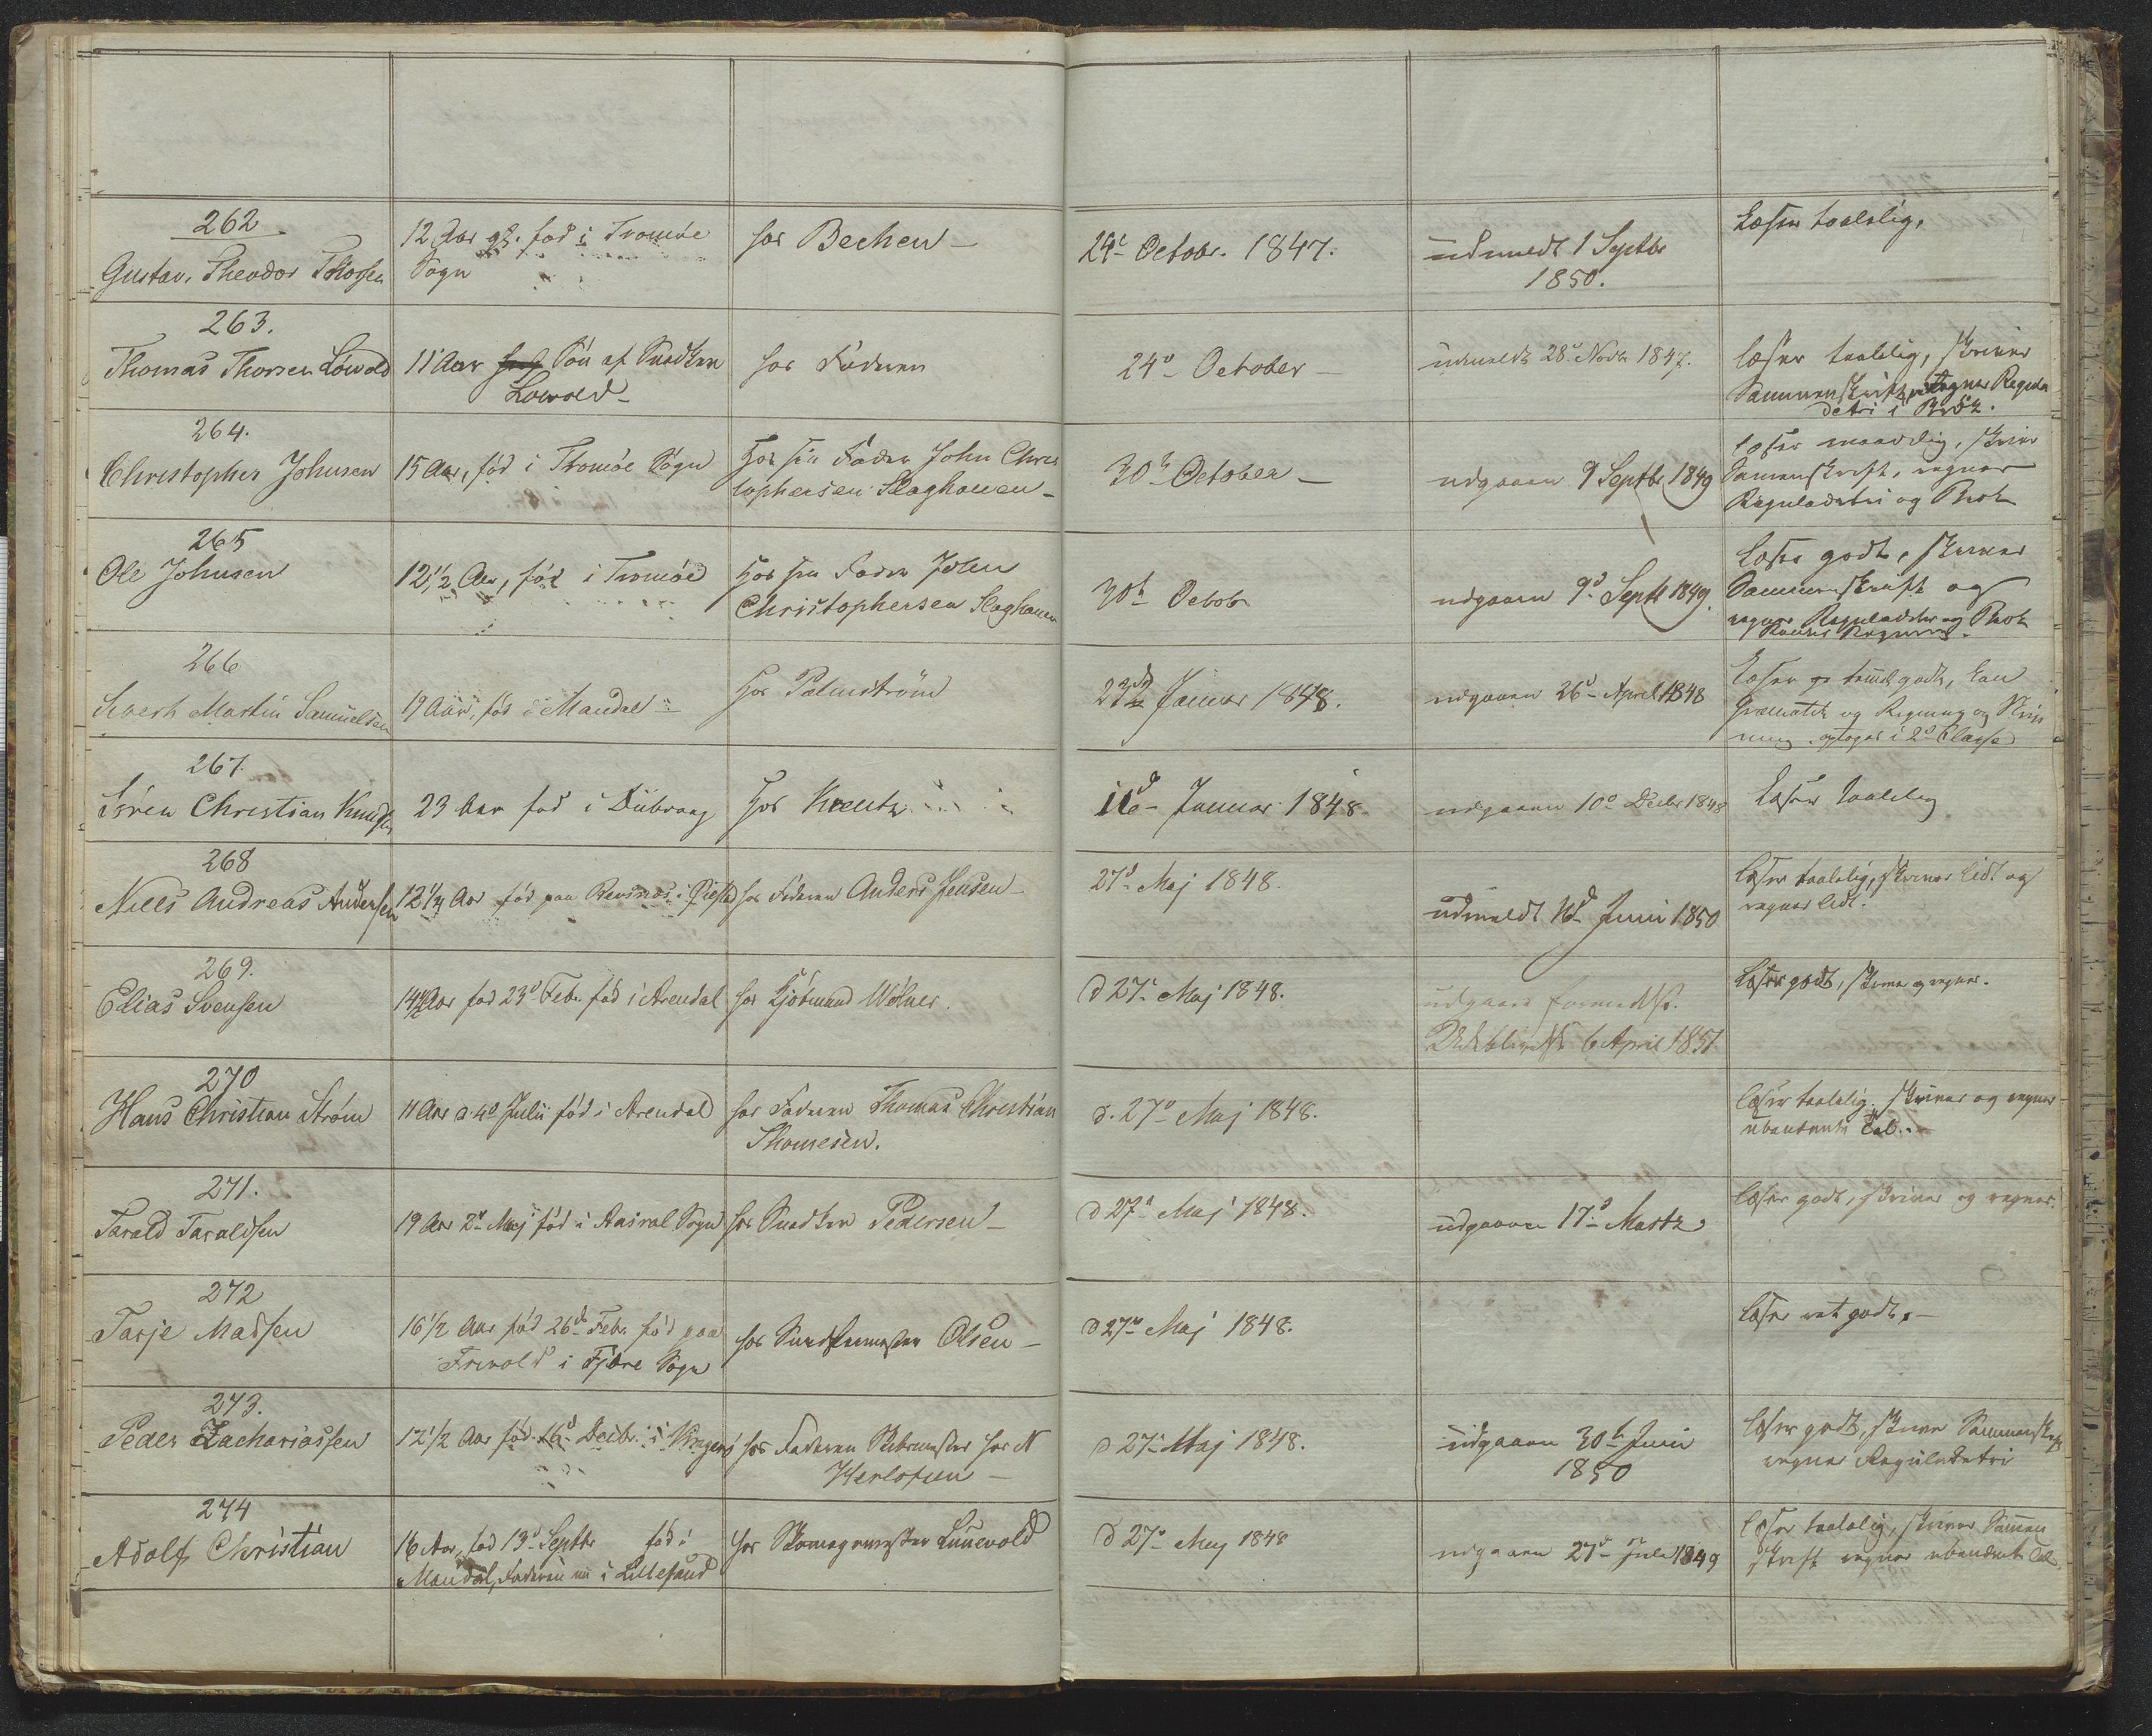 262
Gustav. Theodor Thorsen
12 Aar gl. fød i Tromøe
Sogn
hos Bechen –
24de Octobr. 1847.
udmeldt 1 Septbr
1850.
Læser taalelig.
263.
Thomas Thorsen Løwold
11 Aar Søn af Snedker
Lowold –
hos Faderen
24de October –
udmeldt 28de Novbr 1847.
læser taalelig, skriver
Sammenskrift, regner Regula
detri i Brøk.
264.
Christopher Johnsen
15 Aar, fød i Tromøe Sogn
Hos sin Fader John Chris
tophersen Slaghouen –
30te October –
udgaaen 9 Septbr 1849
læser maadelig, skriver
Samenskrift, regner
Reguladetri og Brøk
265
Ole Johnsen
12 1/2 Aar, fød i Tromøe
Hos sin Fader John
Christophersen Slaghouen
30te Octobr
udgaaen 9de Septb 1849.
læser godt, skriver
Sammenskrift og
regner Reguladetri og Brøk
266
Sivert Martin Samuelsen
19 Aar, fød i Mandal –
Hos Palmstrøm
Januar 1848.
udgaaen 26de April 1848
Læser godt, kan
Gramatik og Regning og Skriv
ning. optoges i 2de Classe
267.
Søren Christian Knudsen
23 Aar fød i Dübvaag
Hos Kreutz
Januar 1848.
udgaaen 10de Decbr 1848
Læser taalelig
268
Niels Andreas Andersen
12 1/4 Aar fød paa i
hos Faderen Anders Jensen –
27de Maj 1848.
udmeldt Juni 1850
læser taalelig, skriver lidt og
regner lidt.
269.
Elias Svensen
14 1/2 Aar fød 23de Febr. fød i Arendal
hos
d 27de Maj 1848.
udgaaet formedelst
Udeblivelse 6 April 1851
Læser godt, skriver og regner.
270
Hans Christian Strøm
11 Aar d. 4de Julii fød i Arendal
hos Faderen Thomas Christian
Thomesen.
d. 27de Maj 1848.
læser taalelig. skriver og regner
ubenævnte Tal. –
271.
Tarald Taraldsen
19 Aar 2de Maj fød i Sogn
hos Snedker Pedersen –
d 27de Maj 1848.
udgaaen 17de Marts
læser godt, skriver og regner.
272
Tarje Madsen
16 1/2 Aar fød 26de Febr. fød paa
Frivold i Fjære Sogn
hos Olsen –
d 27de Maj 1848.
læser ret godt. –
273.
Peder Zachariassen
12 1/2 Aar fød 16de Decbr. i Kragerø
hos Faderen hos N
Herlofsen –
d 27de Maj 1848.
udgaaen 30te Juni
1850
læser godt, skriver Sammenskrift
regner Reguladetri
274
Adolf Christian
16 Aar, fød 13de Septbr fød i
Mandal, Faderen nu i Lillesand
hos Skomagermester Lunevold
d 27de Maj 1848
udgaaen 27de Juli 1849
læser taalelig, skriver Sammen
skrift regner ubenævnte Tal